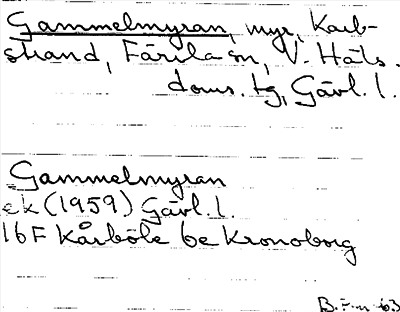 Gammelmyran, myr, Karb-
strand, Färila sn, V. Häls.
doms. tg, Gävl. l.
Gammelmyran
ek (1959) Gävl. l.
16F Kårböle 6e Kronoborg